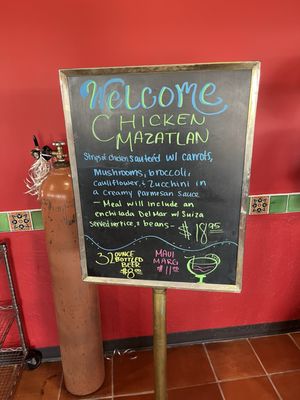 Welcome
Chicken
Mazatlan
Strips of chicken sauteed w/ carrots,
mushrooms, broccoli,
cauliflower, & zucchini in
a creamy parmesan sauce
- Meal will include an
enchilada Del Mar w/ Suiza
served w/ rice, & beans - $18.95
32 ounce
bottled
beer
$8.95
Maui
Marg
$11.95